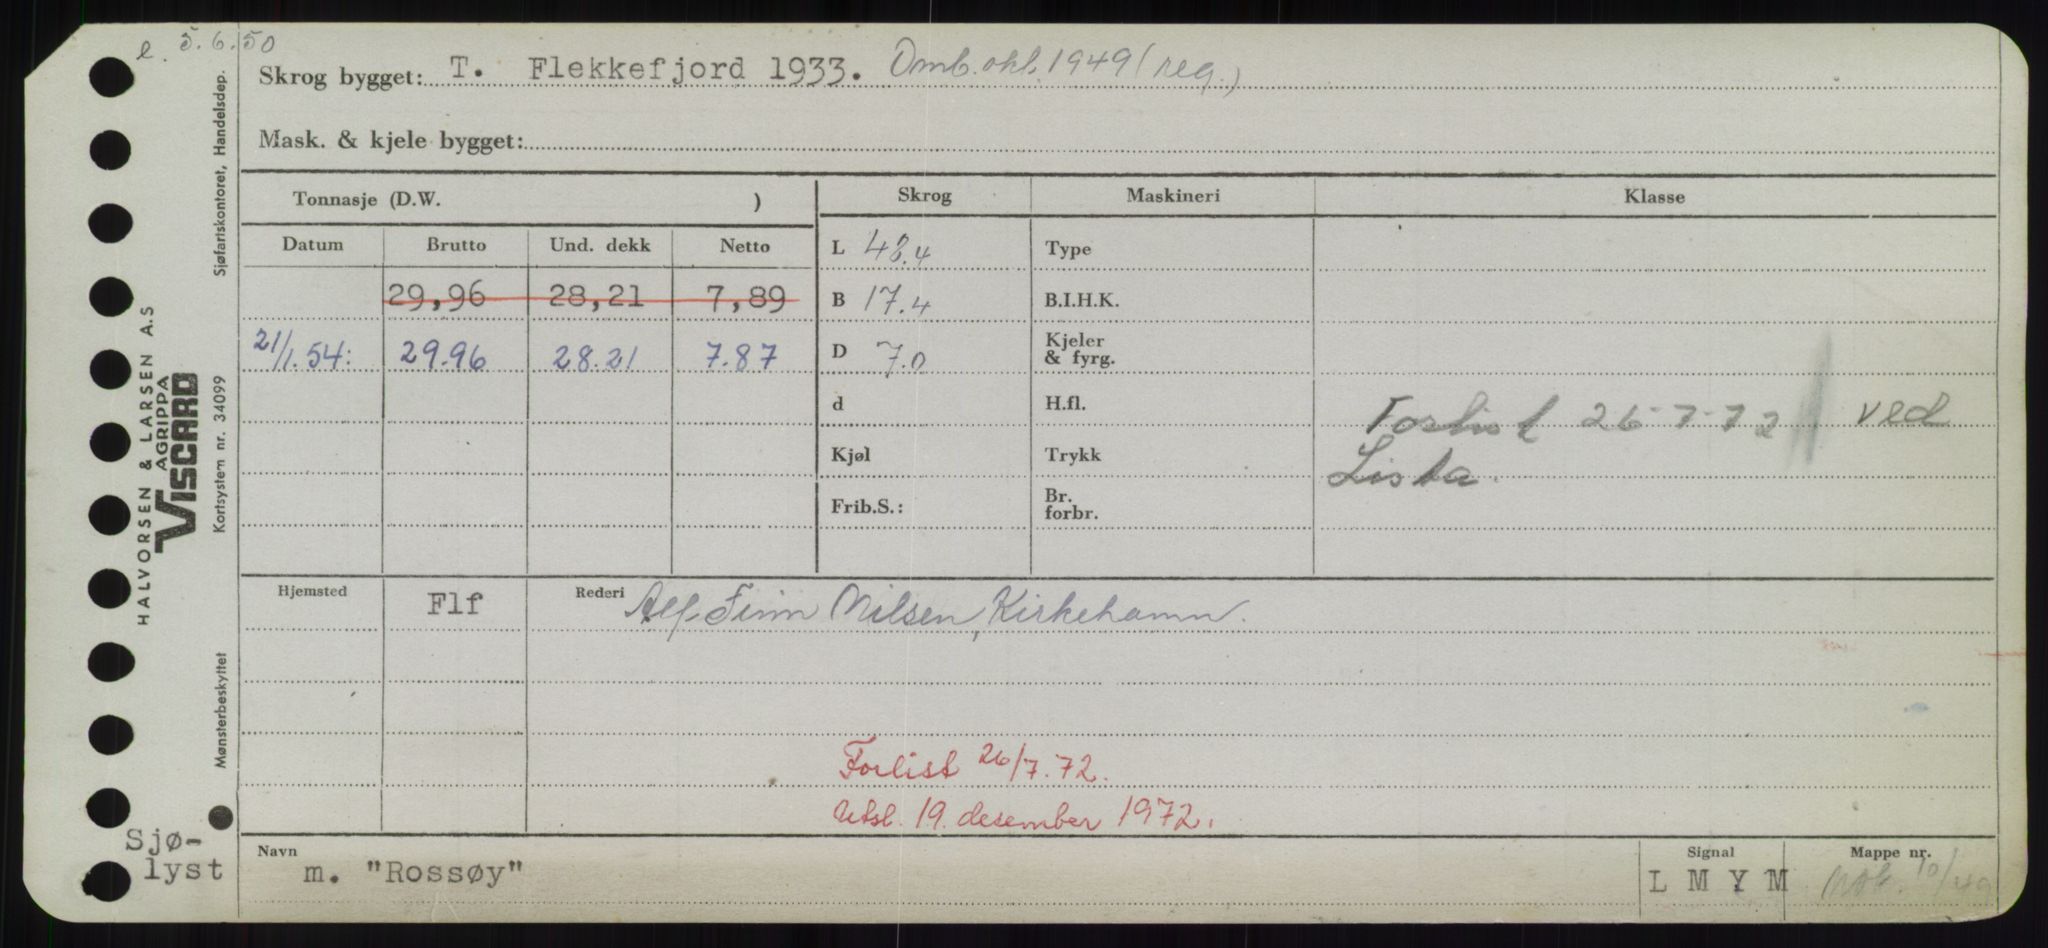 e. 5.6.50
Skrog bygget: T. Flekkefjord 1933. Omb. okt. 1949 (reg.)
Mask. & kjele bygget:
Tonnasje (D.W. )
Skrog Maskineri Klasse
Datum Brutto Und. dekk Netto
L 48.4 Type
29,96 28,21 7,89
B 17.4 B.I.H.K.
21/1.54: 29.96 28.21 7.87
D 7.0 Kjeler & fyrg.
d H.fl.
Forlist 26-7-72 ved
Kjøl Trykk
Lista.
Frib.S.: Br. forbr.
Hjemsted Flf Rederi Alf Finn Nilsen, Kirkehamn.
Forlist 26/7.72.
Utsl. 19. desember 1972.
Navn m. "Rossøy"
Signal L M Y M
Mappe nr. 10/49
Sjø-
lyst
Sjøfartskontoret, Handelsdep.
Kortsystem nr. 34099
Mønsterbeskyttet
HALVORSEN & LARSEN A.S
AGRIPPA
VISCARD